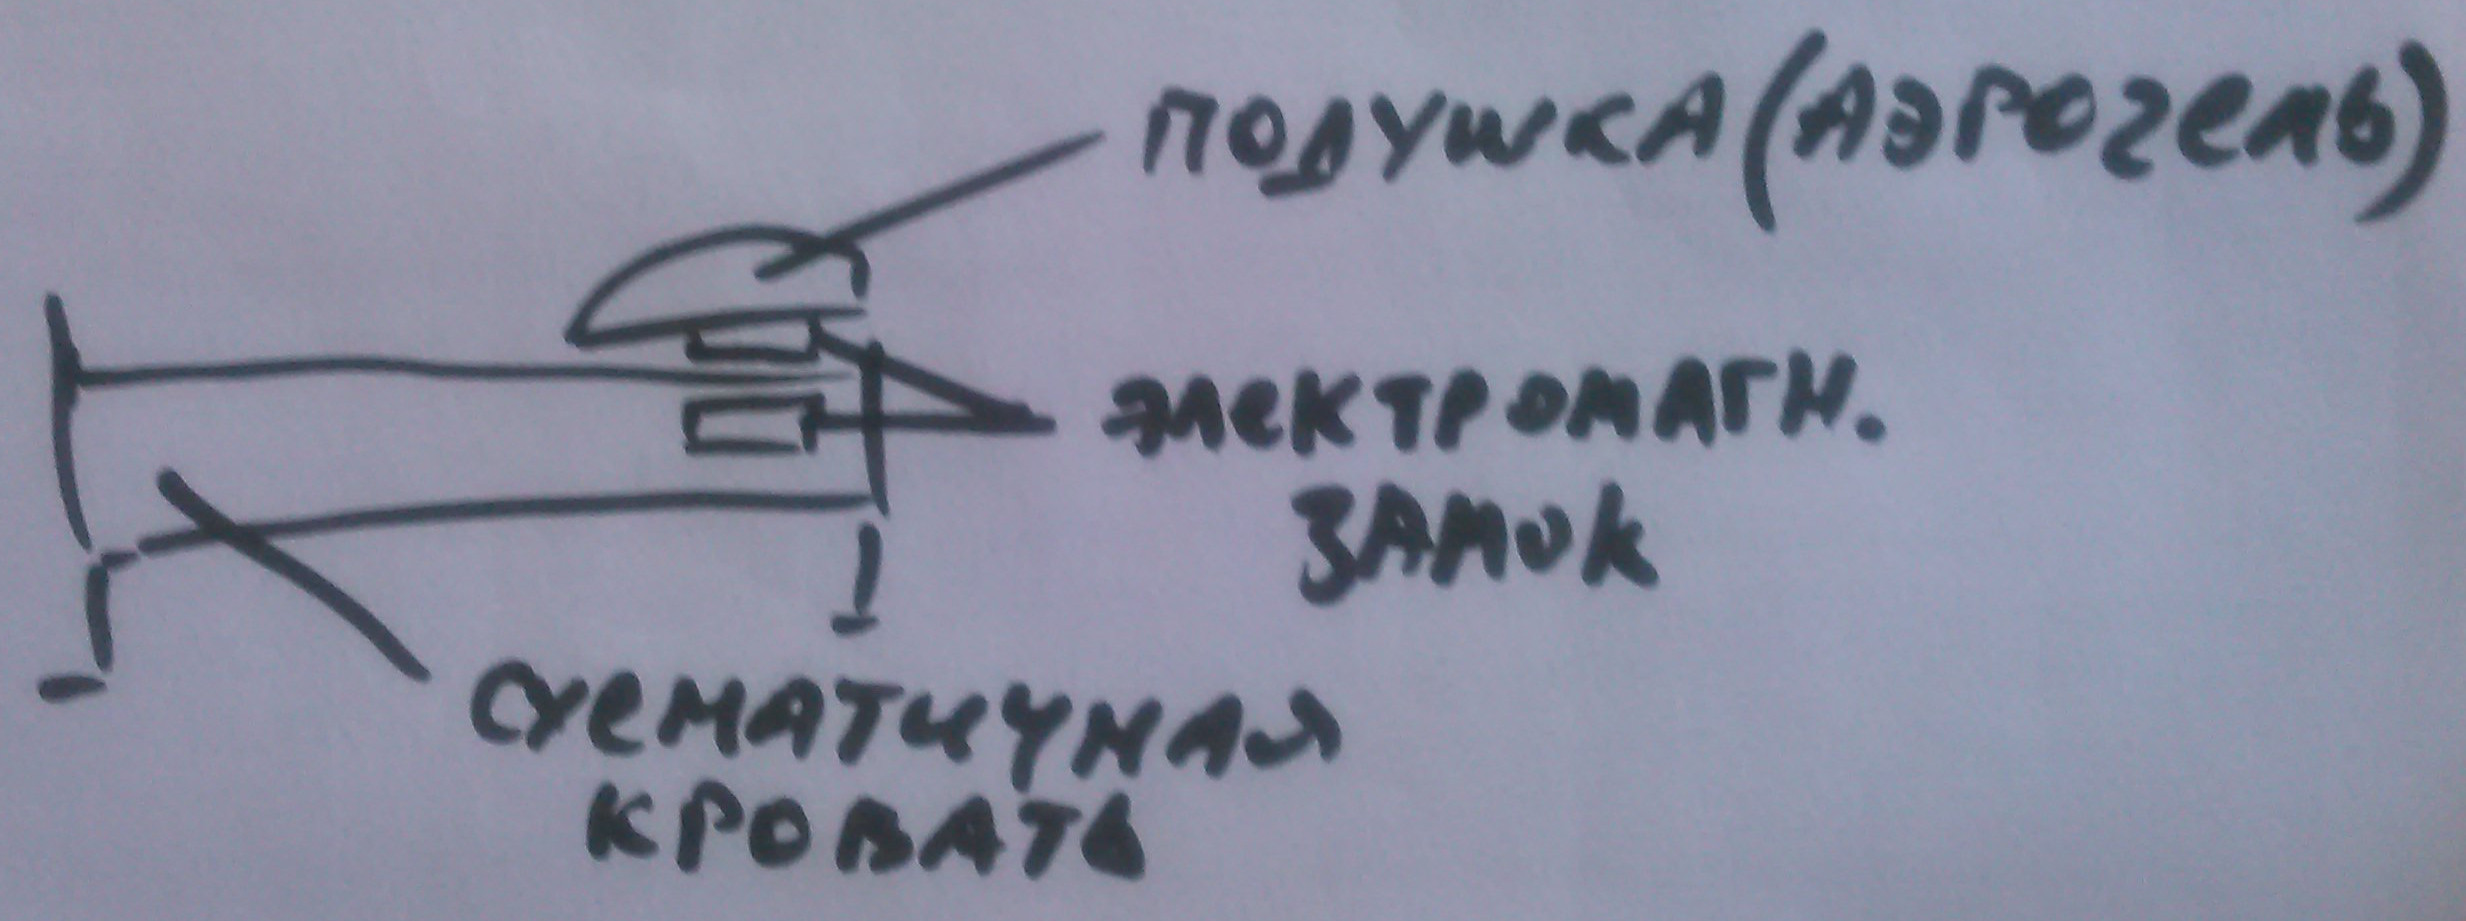 ПОДУШКА (АЭРОГЕЛЬ)
ЭЛЕКТРОМАГН.
ЗАМОК
СХЕМАТИЧНАЯ
КРОВАТЬ